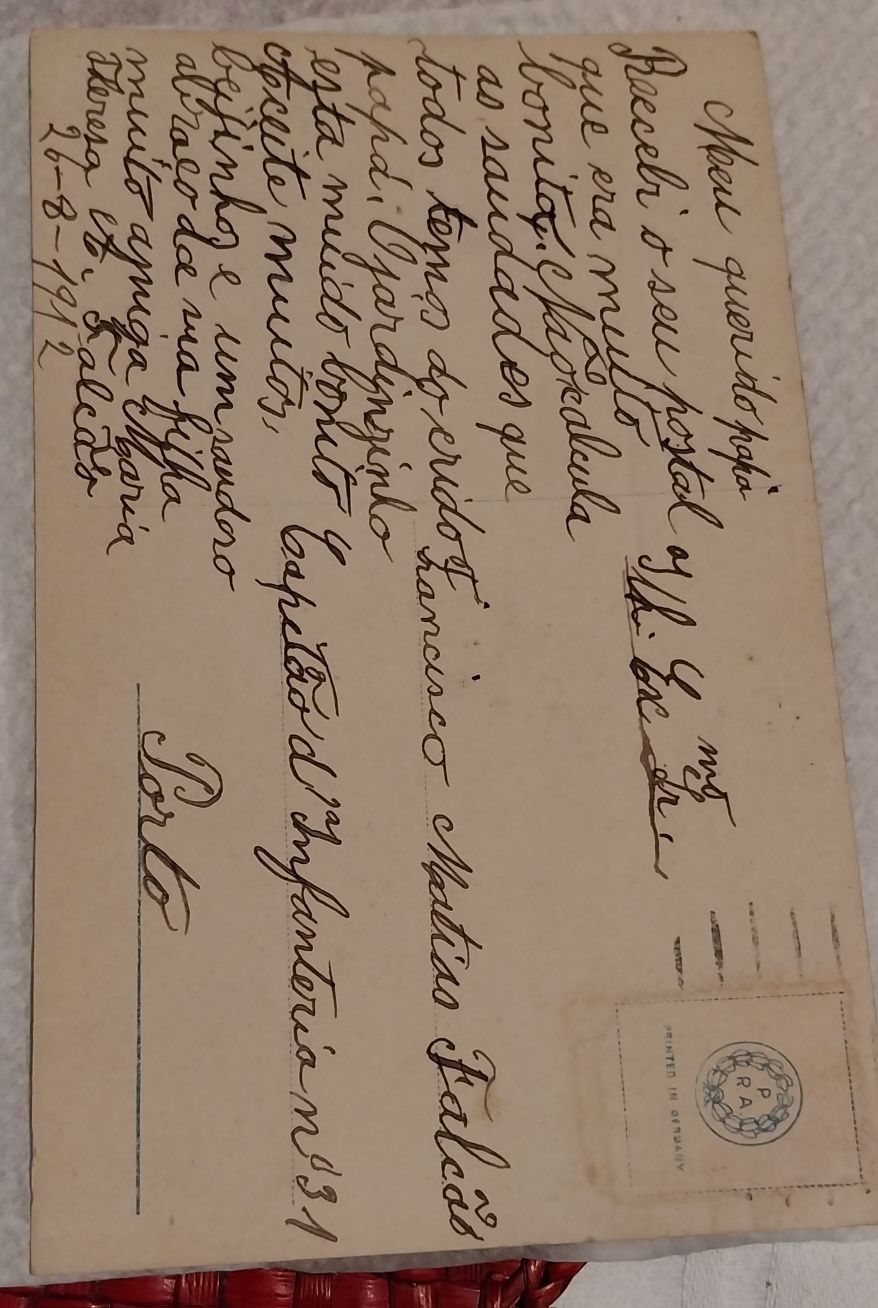 Meu querido papá
Recebi o seu postal
que era muito
bonito. Não calcula
as saudades que
todos temos do crido
papá. O jardinzinho
esta muido bonito
Aceite muitos,
beijinhos e um saudoso
abraco da sua filha
muito amiga Maria
Theresa Falcão
26-8-1912
Exmo Sr.
Francisco Matias Falcão
Capitão d'Infanteria nº 31
Porto
PRA
PRINTED IN GERMANY